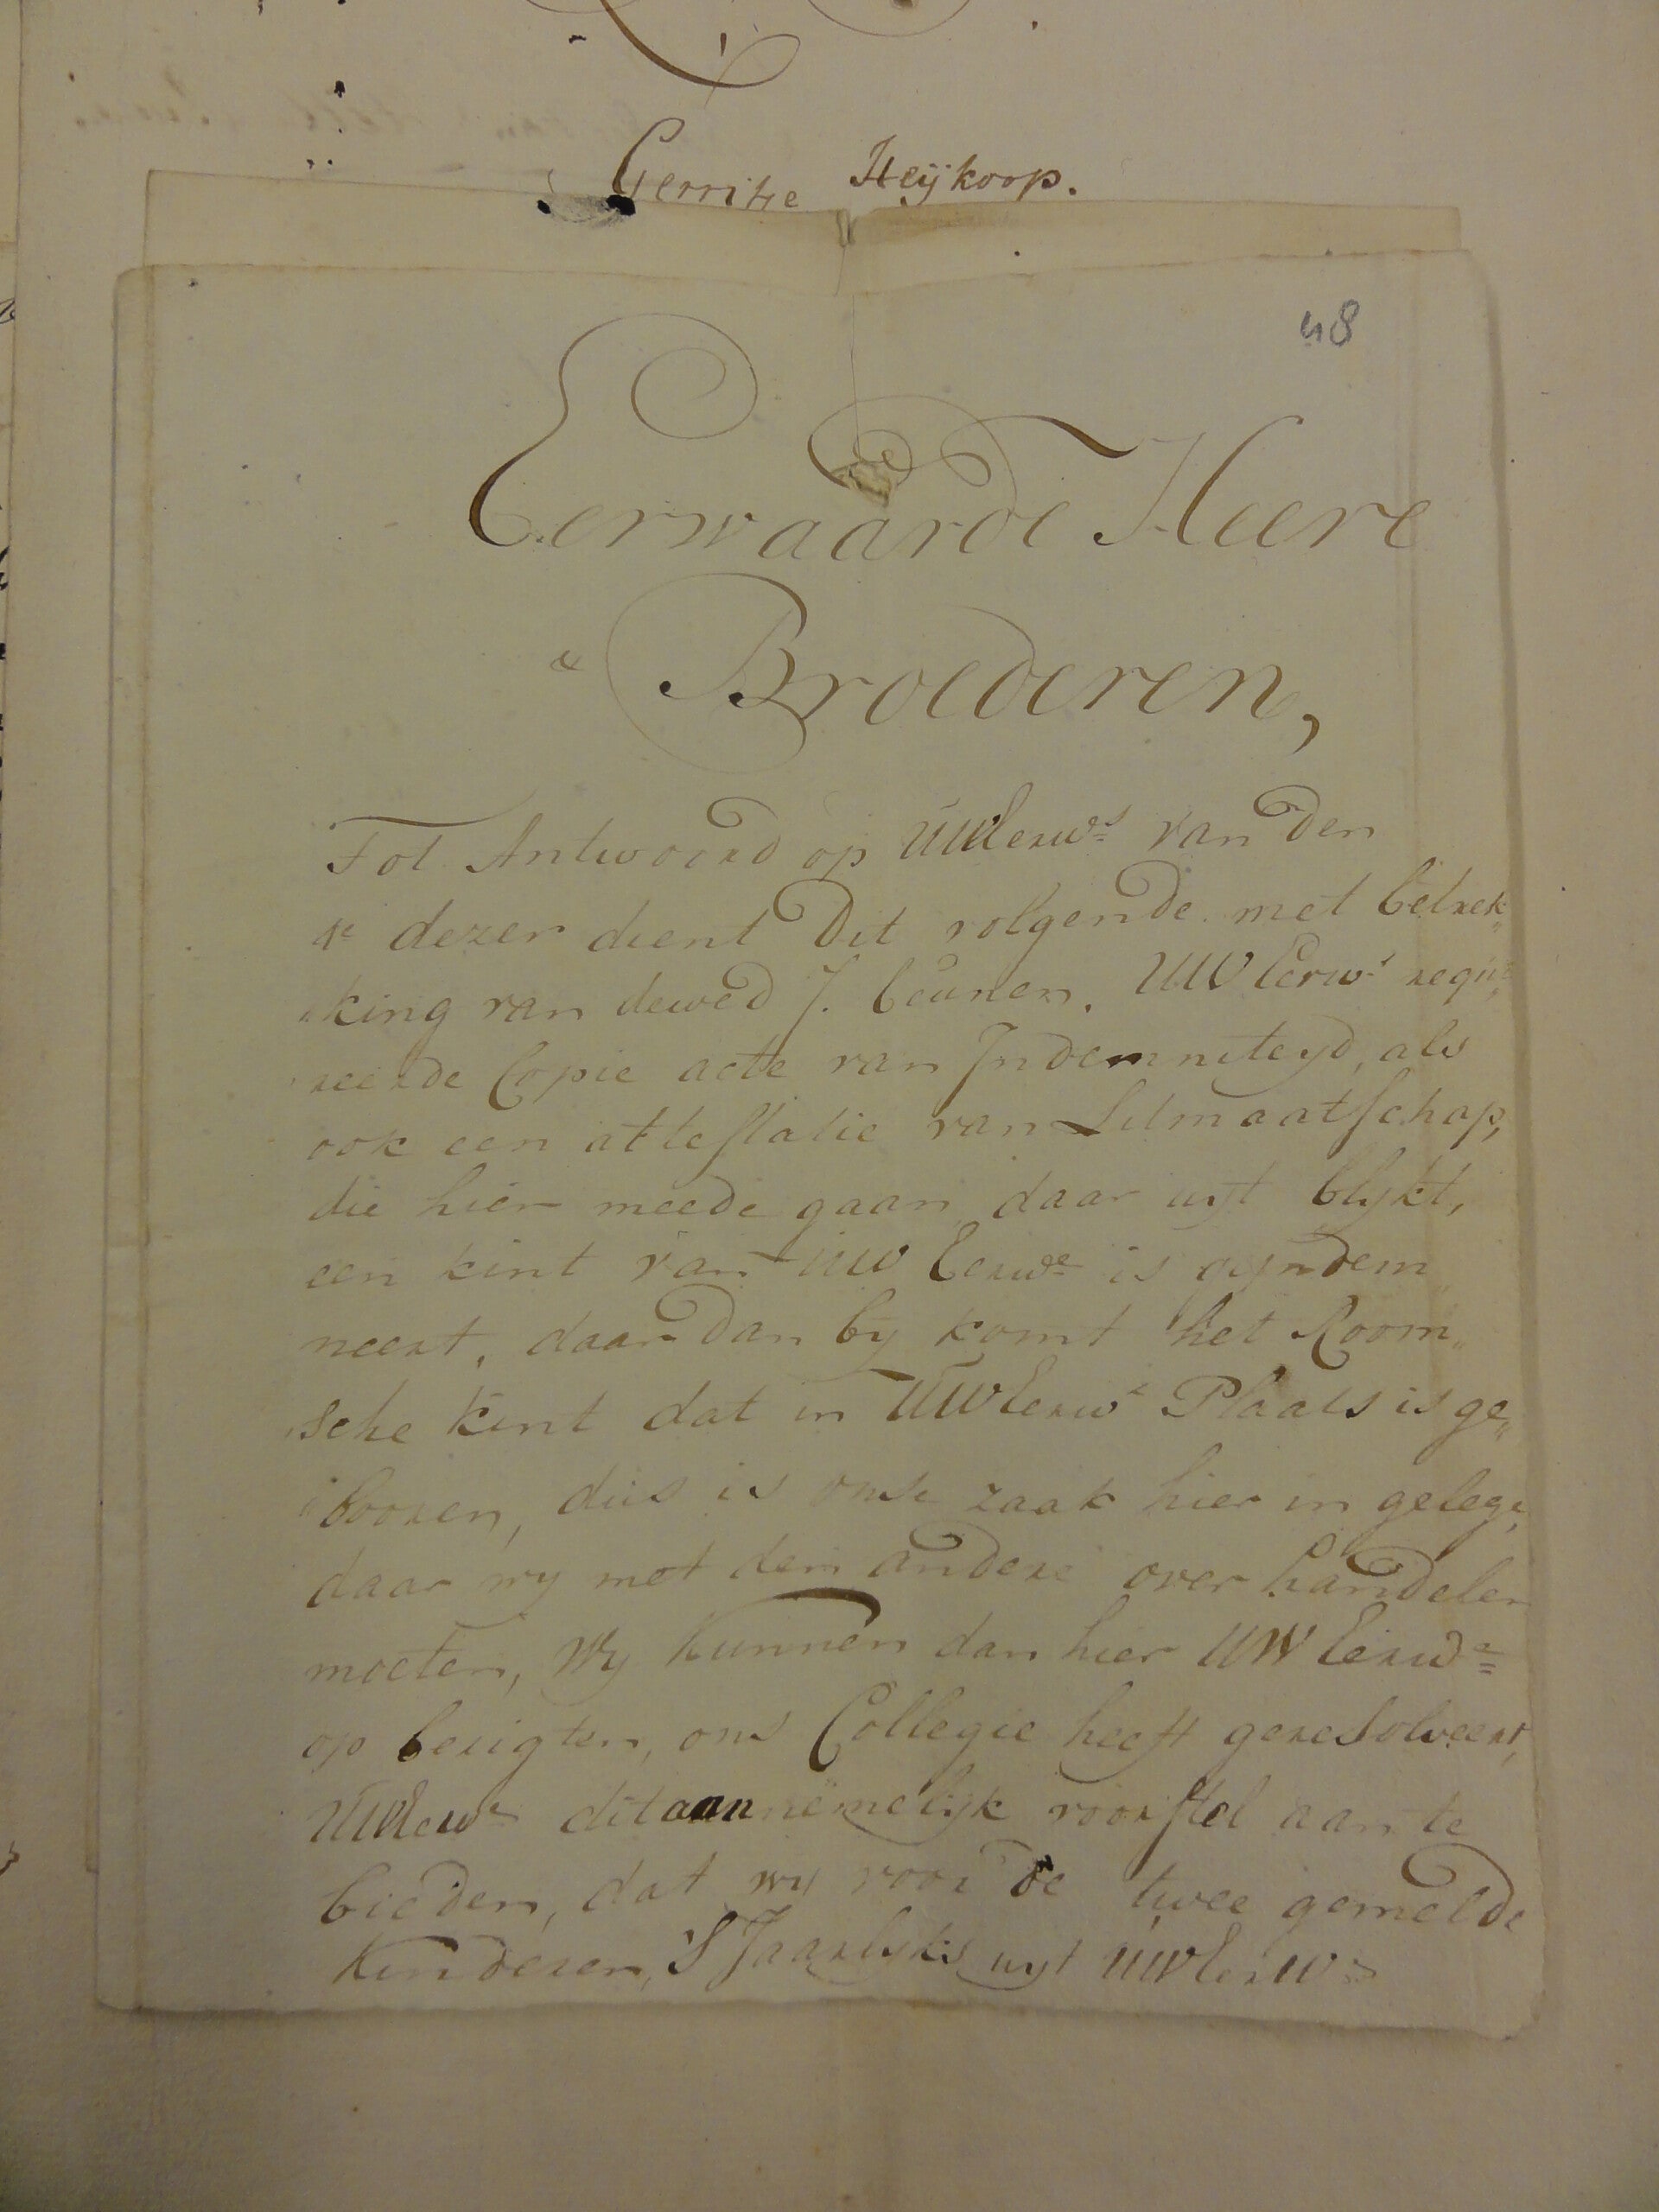 Gerritje Heijkoop.
48
Eerwaarde Heere
& Broederen,
Tot Antwoord op UWEerws van den
4e dezer dient Dit volgende met betrek„
„king van dewed J. Ceunen. UW Eerws requi„
reerde Copie acte van Indemniteyd, als
ook een attestatie van Litmaatschap,
die hier meede gaan, daar uyt blykt,
een kint van UW Eerwe is geyndem„
neert, daar Dan by komt het Room„
„sche kint dat in UWEerws Plaats is ge„
„booren, dus is onse zaak hier in gelege,
daar wy met dem andere over handelen
moeten, Wy kunnen dan hier UW Eerwe
op berigten, ons Collegie heeft geresolveert,
UWEerws dit aannemelyk voorstel aan te
bieden, dat wy voor de twee gemelde
kinderen, 'S Jaarlyks uyt UWEerws